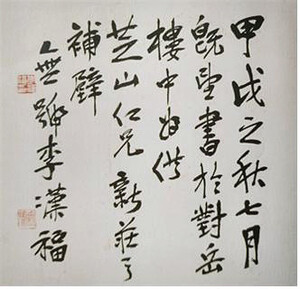 甲戌之秋七月
既望書於對岳
樓中供
芝山仁兄新莊之
補壁
無號李漢福